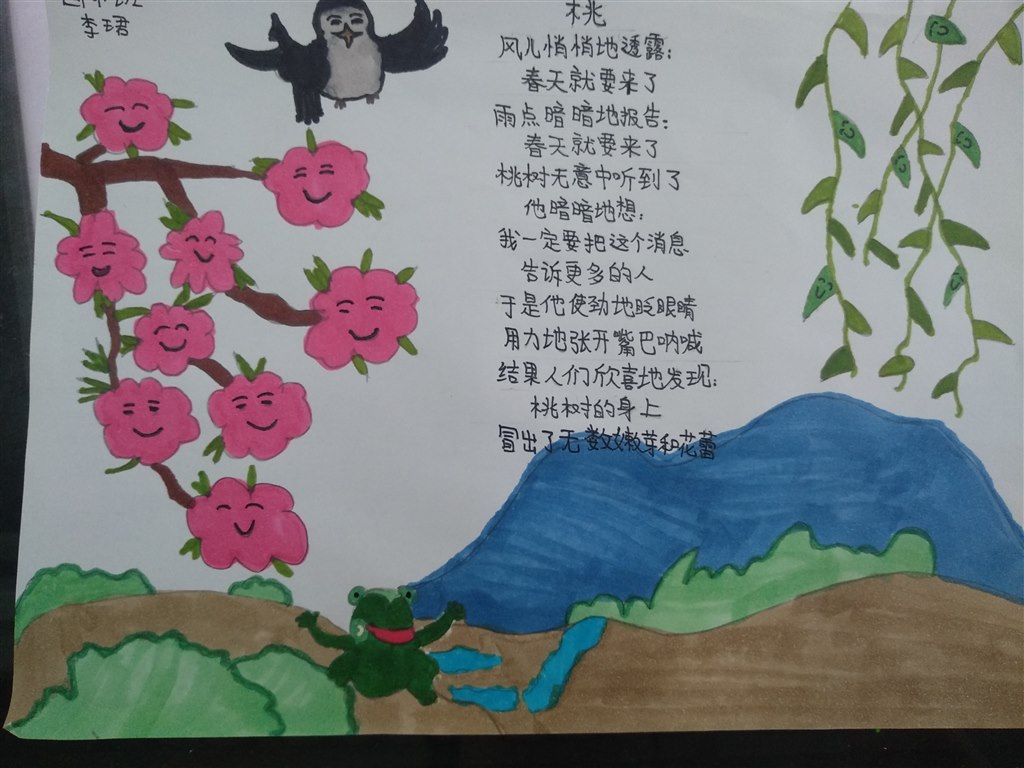 李珺
桃
风儿悄悄地透露:
春天就要来了
雨点暗暗地报告:
春天就要来了
桃树无意中听到了
他暗暗地想:
我一定要把这个消息
告诉更多的人
于是他使劲地眨眼睛
用力地张开嘴巴呐喊
结果人们欣喜地发现:
桃树的身上
冒出了无数嫩芽和花蕾